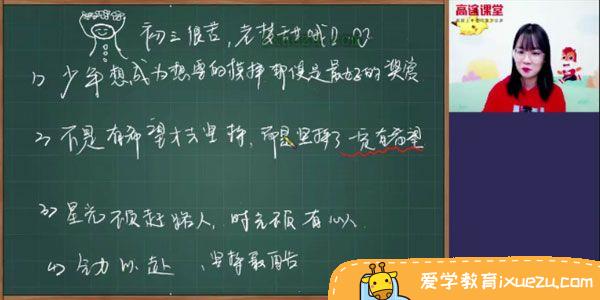 初三很苦，老梦甜哦
高途课堂
1) 少年想成为想要的模样 那便是最好的奖赏
2) 不是有希望才去坚持，而是坚持了一定有希望
3) 星光不负赶路人，时光不负有心人
4) 全力以赴
爱学教育ixuezu.com